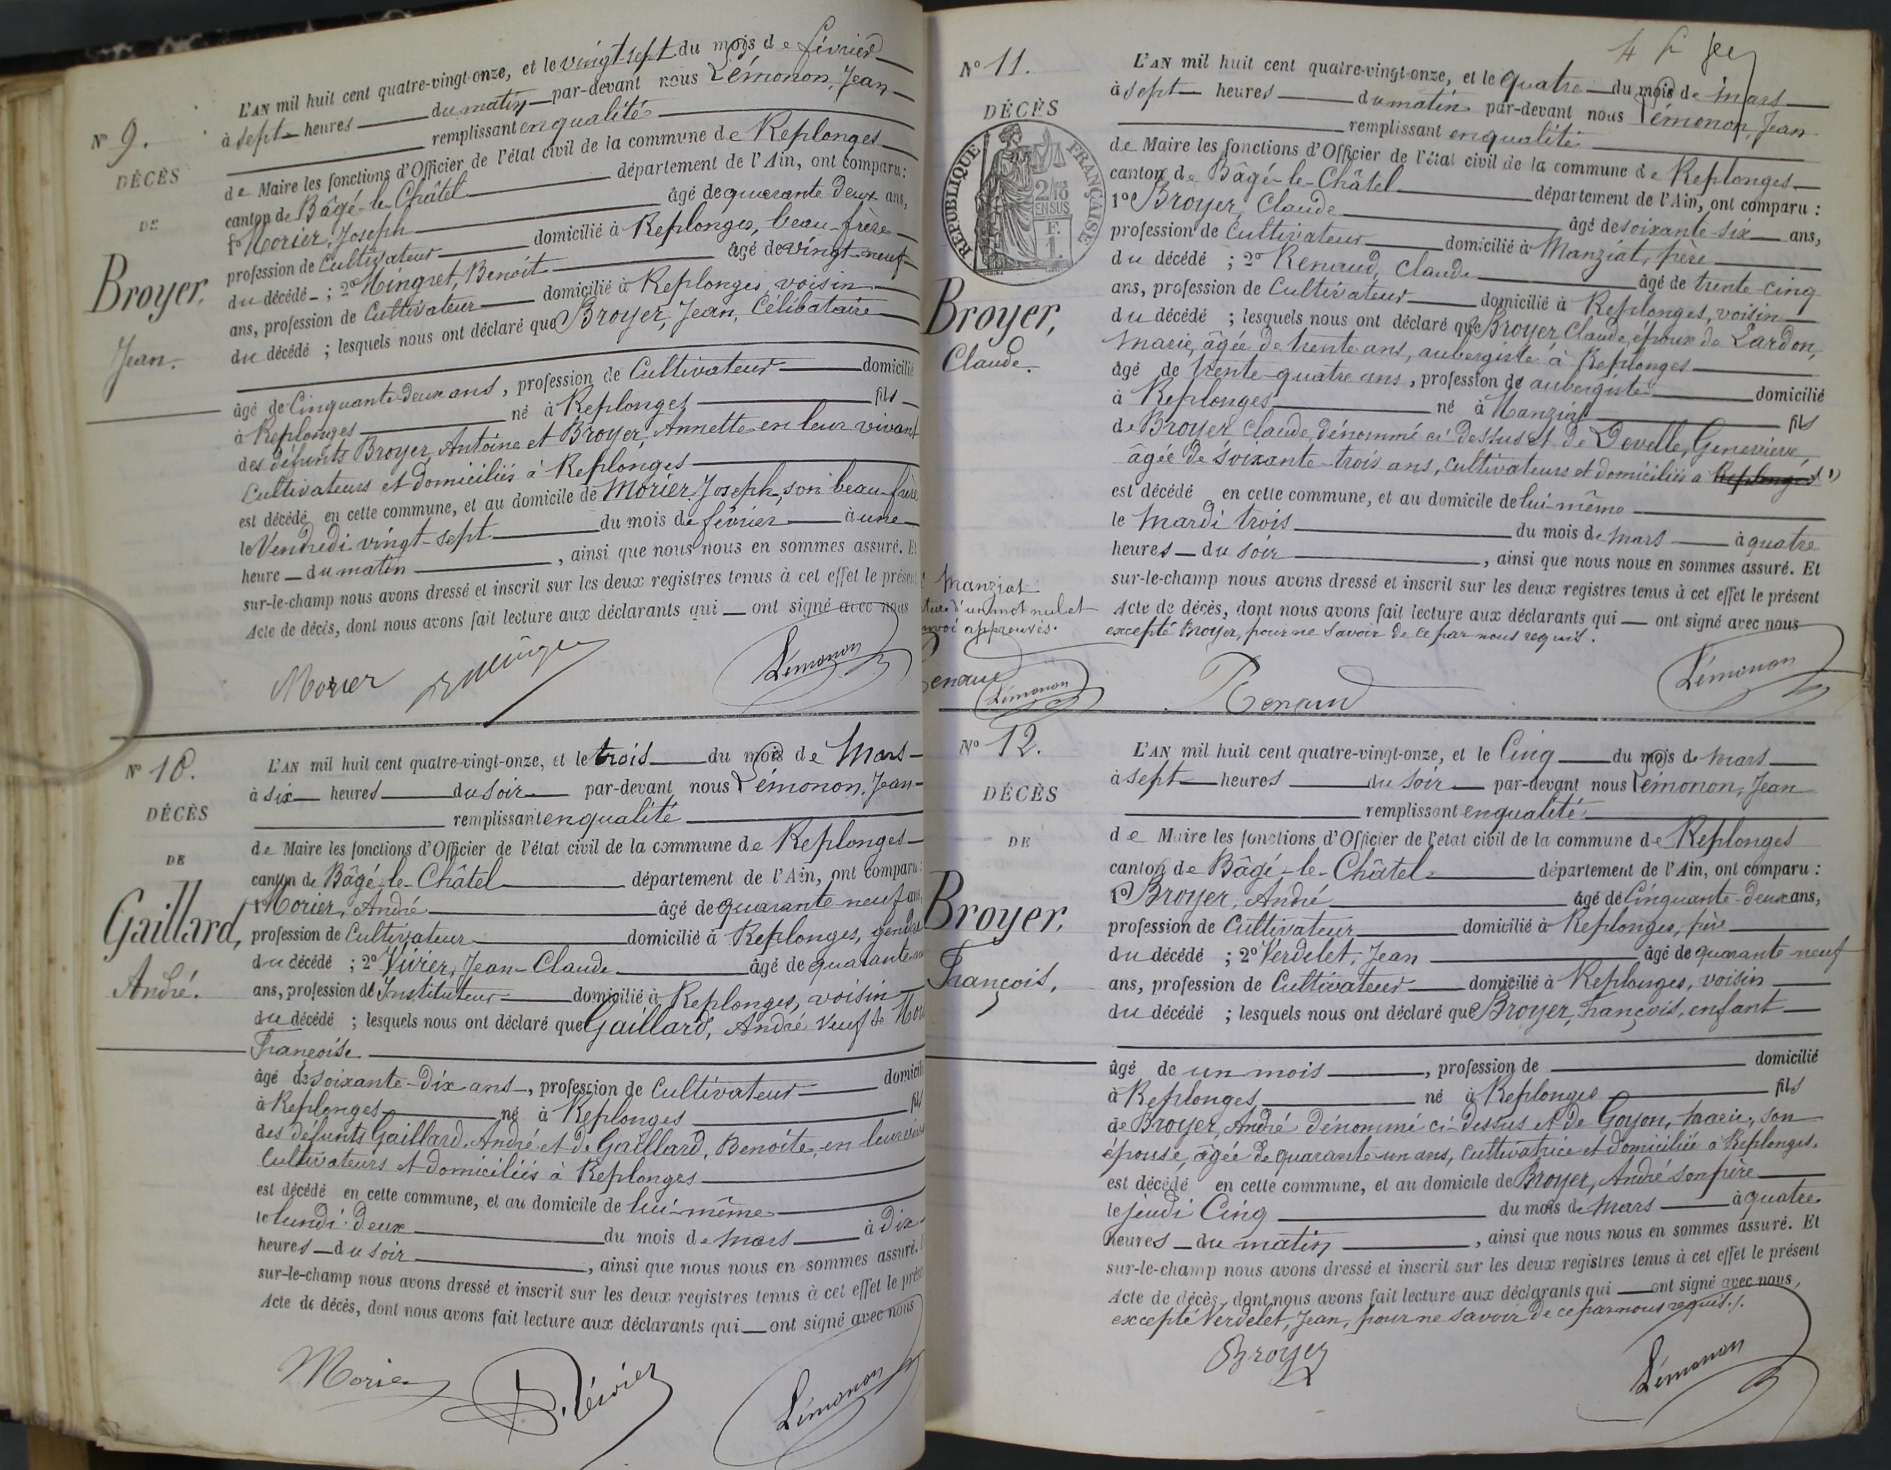 N° 9.
DÉCÈS
DE
Broyer,
Jean.
L'AN mil huit cent quatre-vingt-onze, et le vingt-sept du mois de février
à sept heures du matin par-devant nous Lémonon, Jean
remplissant en qualité
de Maire les fonctions d'Officier de l'état civil de la commune de Replonges
canton de Bâgé-le-Châtel département de l'Ain, ont comparu :
1° Morier, Joseph âgé de quarante deux ans,
profession de Cultivateur domicilié à Replonges, beau-frère
du décédé ; 2° Mingret, Benoit âgé de vingt-neuf
ans, profession de Cultivateur domicilié à Replonges, voisin
du décédé ; lesquels nous ont déclaré que Broyer, Jean, Célibataire
âgé de Cinquante-deux ans, profession de Cultivateur domicilié
à Replonges né à Replonges fils
des défunts Broyer, Antoine et Broyer, Annette en leur vivant
Cultivateurs et domiciliés à Replonges
est décédé en cette commune, et au domicile de Morier, Joseph, son beau-frère
le Vendredi vingt-sept du mois de février à une
heure du matin, ainsi que nous nous en sommes assuré. Et
sur-le-champ nous avons dressé et inscrit sur les deux registres tenus à cet effet le présent
Acte de décès, dont nous avons fait lecture aux déclarants qui ont signé avec nous
Morier Lémonon
N° 10.
DÉCÈS
DE
Gaillard,
André.
L'AN mil huit cent quatre-vingt-onze, et le trois du mois de Mars
à six heures du soir par-devant nous Lémonon, Jean
remplissant en qualité
de Maire les fonctions d'Officier de l'état civil de la commune de Replonges
canton de Bâgé-le-Châtel département de l'Ain, ont comparu :
1° Morier, André âgé de quarante neuf ans,
profession de Cultivateur domicilié à Replonges, gendre
du décédé ; 2° Vivier, Jean-Claude âgé de quarante
ans, profession de Instituteur domicilié à Replonges, voisin
du décédé ; lesquels nous ont déclaré que Gaillard, André veuf de
Françoise
âgé de soixante-dix ans, profession de Cultivateur domicilié
à Replonges né à Replonges fils
des défunts Gaillard, André et de Gaillard, Benoîte, en leur vivant
Cultivateurs et domiciliés à Replonges
est décédé en cette commune, et au domicile de lui-même
le lundi deux du mois de Mars à dix
heures du soir, ainsi que nous nous en sommes assuré.
sur-le-champ nous avons dressé et inscrit sur les deux registres tenus à cet effet le présent
Acte de décès, dont nous avons fait lecture aux déclarants qui ont signé avec nous
Morier Vivier Lémonon
N° 11.
DÉCÈS
RÉPUBLIQUE FRANÇAISE
2/10 EN SUS
F. 1.
Broyer,
Claude.
L'AN mil huit cent quatre-vingt-onze, et le quatre du mois de Mars
à sept heures du matin par-devant nous Lémonon, Jean
remplissant en qualité
de Maire les fonctions d'Officier de l'état civil de la commune de Replonges
canton de Bâgé-le-Châtel département de l'Ain, ont comparu :
1° Broyer, Claude âgé de soixante-six ans,
profession de Cultivateur domicilié à Manziat, père
du décédé ; 2° Renaud, Claude âgé de trente-cinq
ans, profession de Cultivateur domicilié à Replonges, voisin
du décédé ; lesquels nous ont déclaré que Broyer Claude, époux de Lardon,
Marie, âgée de trente ans, aubergiste à Replonges
âgé de trente-quatre ans, profession de aubergiste domicilié
à Replonges né à Manziat fils
de Broyer, Claude, dénommé ci-dessus et de Devella, Geneviève,
âgée de soixante-trois ans, cultivateurs et domiciliés à Replonges 1)
est décédé en cette commune, et au domicile de lui-même
le Mardi trois du mois de Mars à quatre
heures du soir, ainsi que nous nous en sommes assuré. Et
sur-le-champ nous avons dressé et inscrit sur les deux registres tenus à cet effet le présent
Acte de décès, dont nous avons fait lecture aux déclarants qui ont signé avec nous
excepté Broyer, pour ne savoir de ce par nous requis.
Manziat
d'un mot nul et
approuvés.
Lémonon
Renaud Lémonon
N° 12.
DÉCÈS
DE
Broyer,
François.
L'AN mil huit cent quatre-vingt-onze, et le Cinq du mois de Mars
à sept heures du soir par-devant nous Lémonon, Jean
remplissant en qualité
de Maire les fonctions d'Officier de l'état civil de la commune de Replonges
canton de Bâgé-le-Châtel département de l'Ain, ont comparu :
1° Broyer, André âgé de Cinquante-deux ans,
profession de Cultivateur domicilié à Replonges, père
du décédé ; 2° Verdelet, Jean âgé de quarante-neuf
ans, profession de Cultivateur domicilié à Replonges, voisin
du décédé ; lesquels nous ont déclaré que Broyer, François, enfant
âgé de un mois, profession de domicilié
à Replonges né à Replonges fils
de Broyer, André dénommé ci-dessus et de Goyon, Marie, son
épouse, âgée de quarante-un ans, cultivatrice et domiciliée à Replonges.
est décédé en cette commune, et au domicile de Broyer, André son père
le jeudi Cinq du mois de Mars à quatre
heures du matin, ainsi que nous nous en sommes assuré. Et
sur-le-champ nous avons dressé et inscrit sur les deux registres tenus à cet effet le présent
Acte de décès, dont nous avons fait lecture aux déclarants qui ont signé avec nous,
excepté Verdelet, Jean, pour ne savoir de ce par nous requis.
Broyer Lémonon